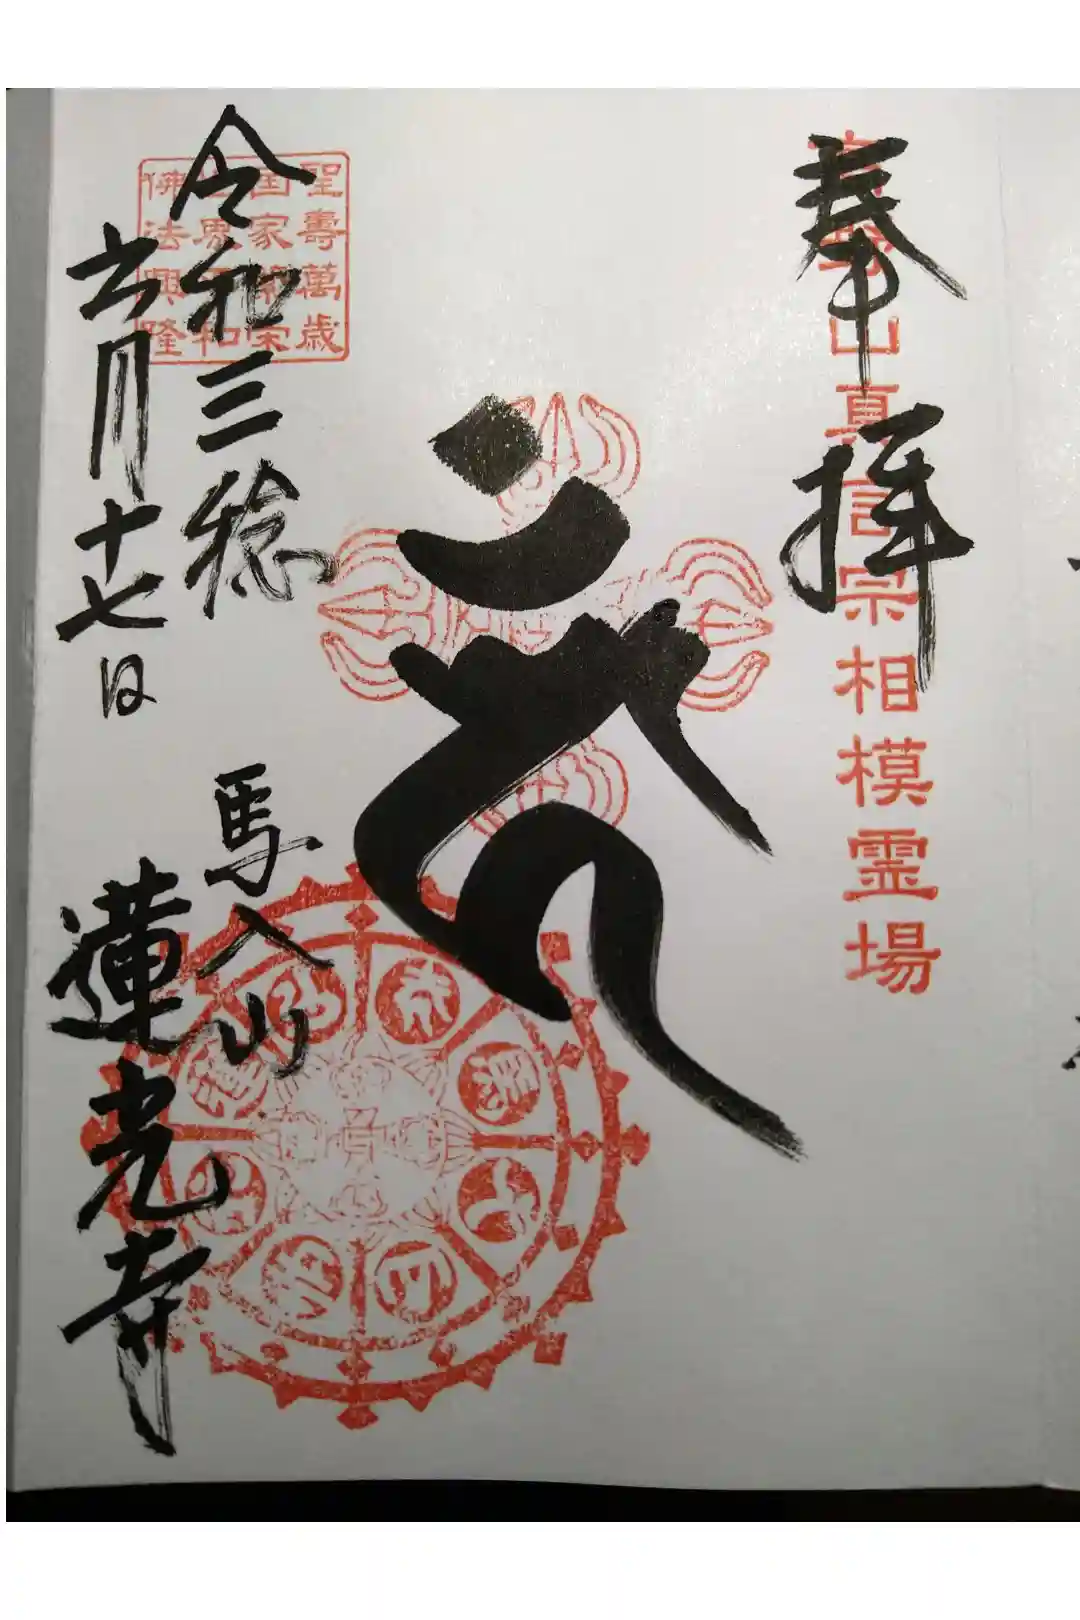 奉拝
高野山真言宗相模霊場
अं
聖壽萬歳
国家繁栄
世界平和
佛法興隆
令和三稔
六月十七日
馬入山
蓮光寺